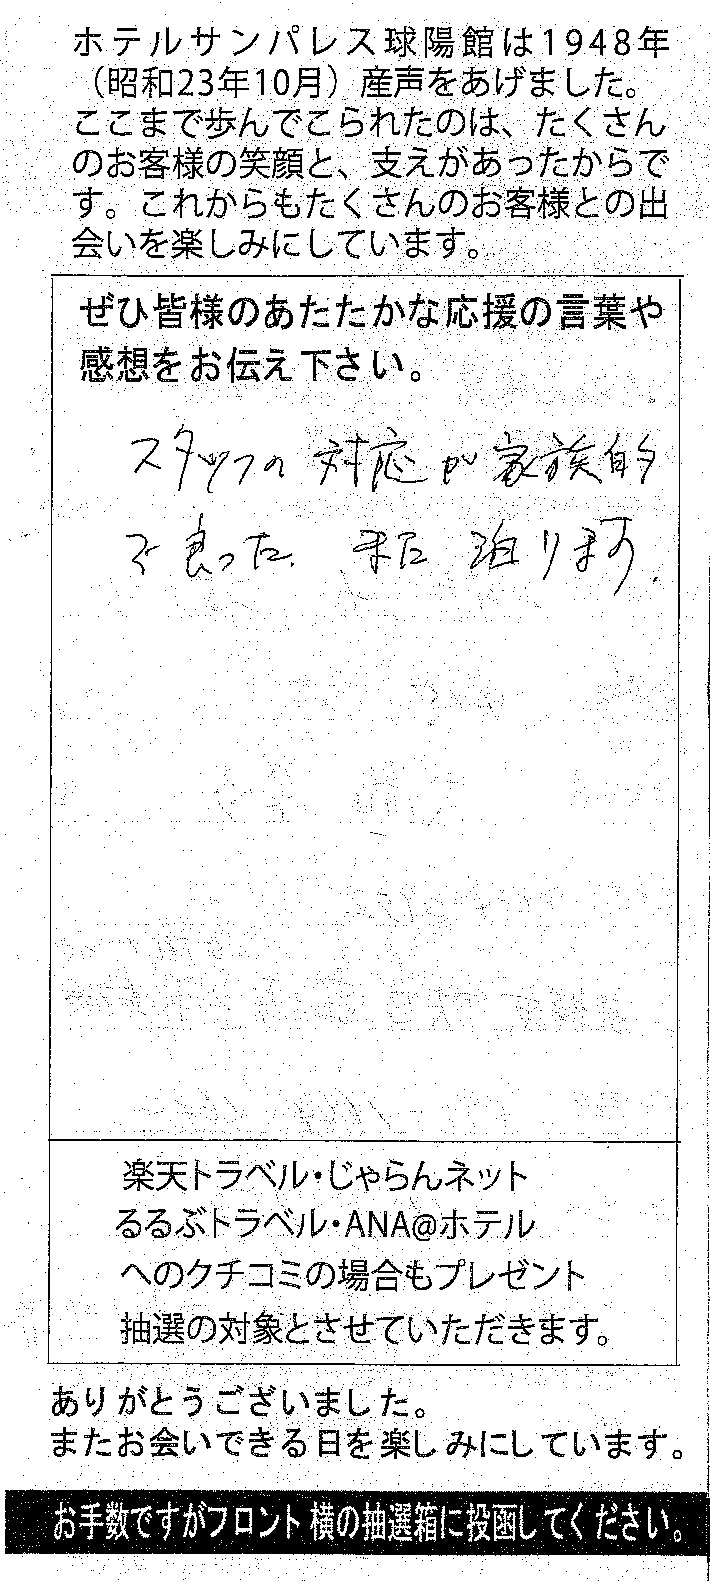 ホテルサンパレス球陽館は1948年
（昭和23年10月）産声をあげました。
ここまで歩んでこられたのは、たくさん
のお客様の笑顔と、支えがあったからで
す。これからもたくさんのお客様との出
会いを楽しみにしています。
ぜひ皆様のあたたかな応援の言葉や
感想をお伝え下さい。
スタッフの対応が家族的
で良った。また泊ります.
楽天トラベル・じゃらんネット
るるぶトラベル・ANA@ホテル
へのクチコミの場合もプレゼント
抽選の対象とさせていただきます。
ありがとうございました。
またお会いできる日を楽しみにしています。
お手数ですがフロント横の抽選箱に投函してください。